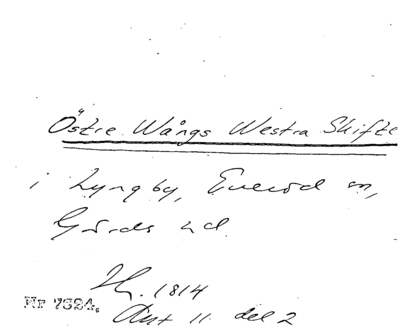 Östre Wångs Westra Skifte
i Lyngby, Everöd sn,
Gärds hd.
Hy. 1814
Nr 7324.
Akt 11 del 2